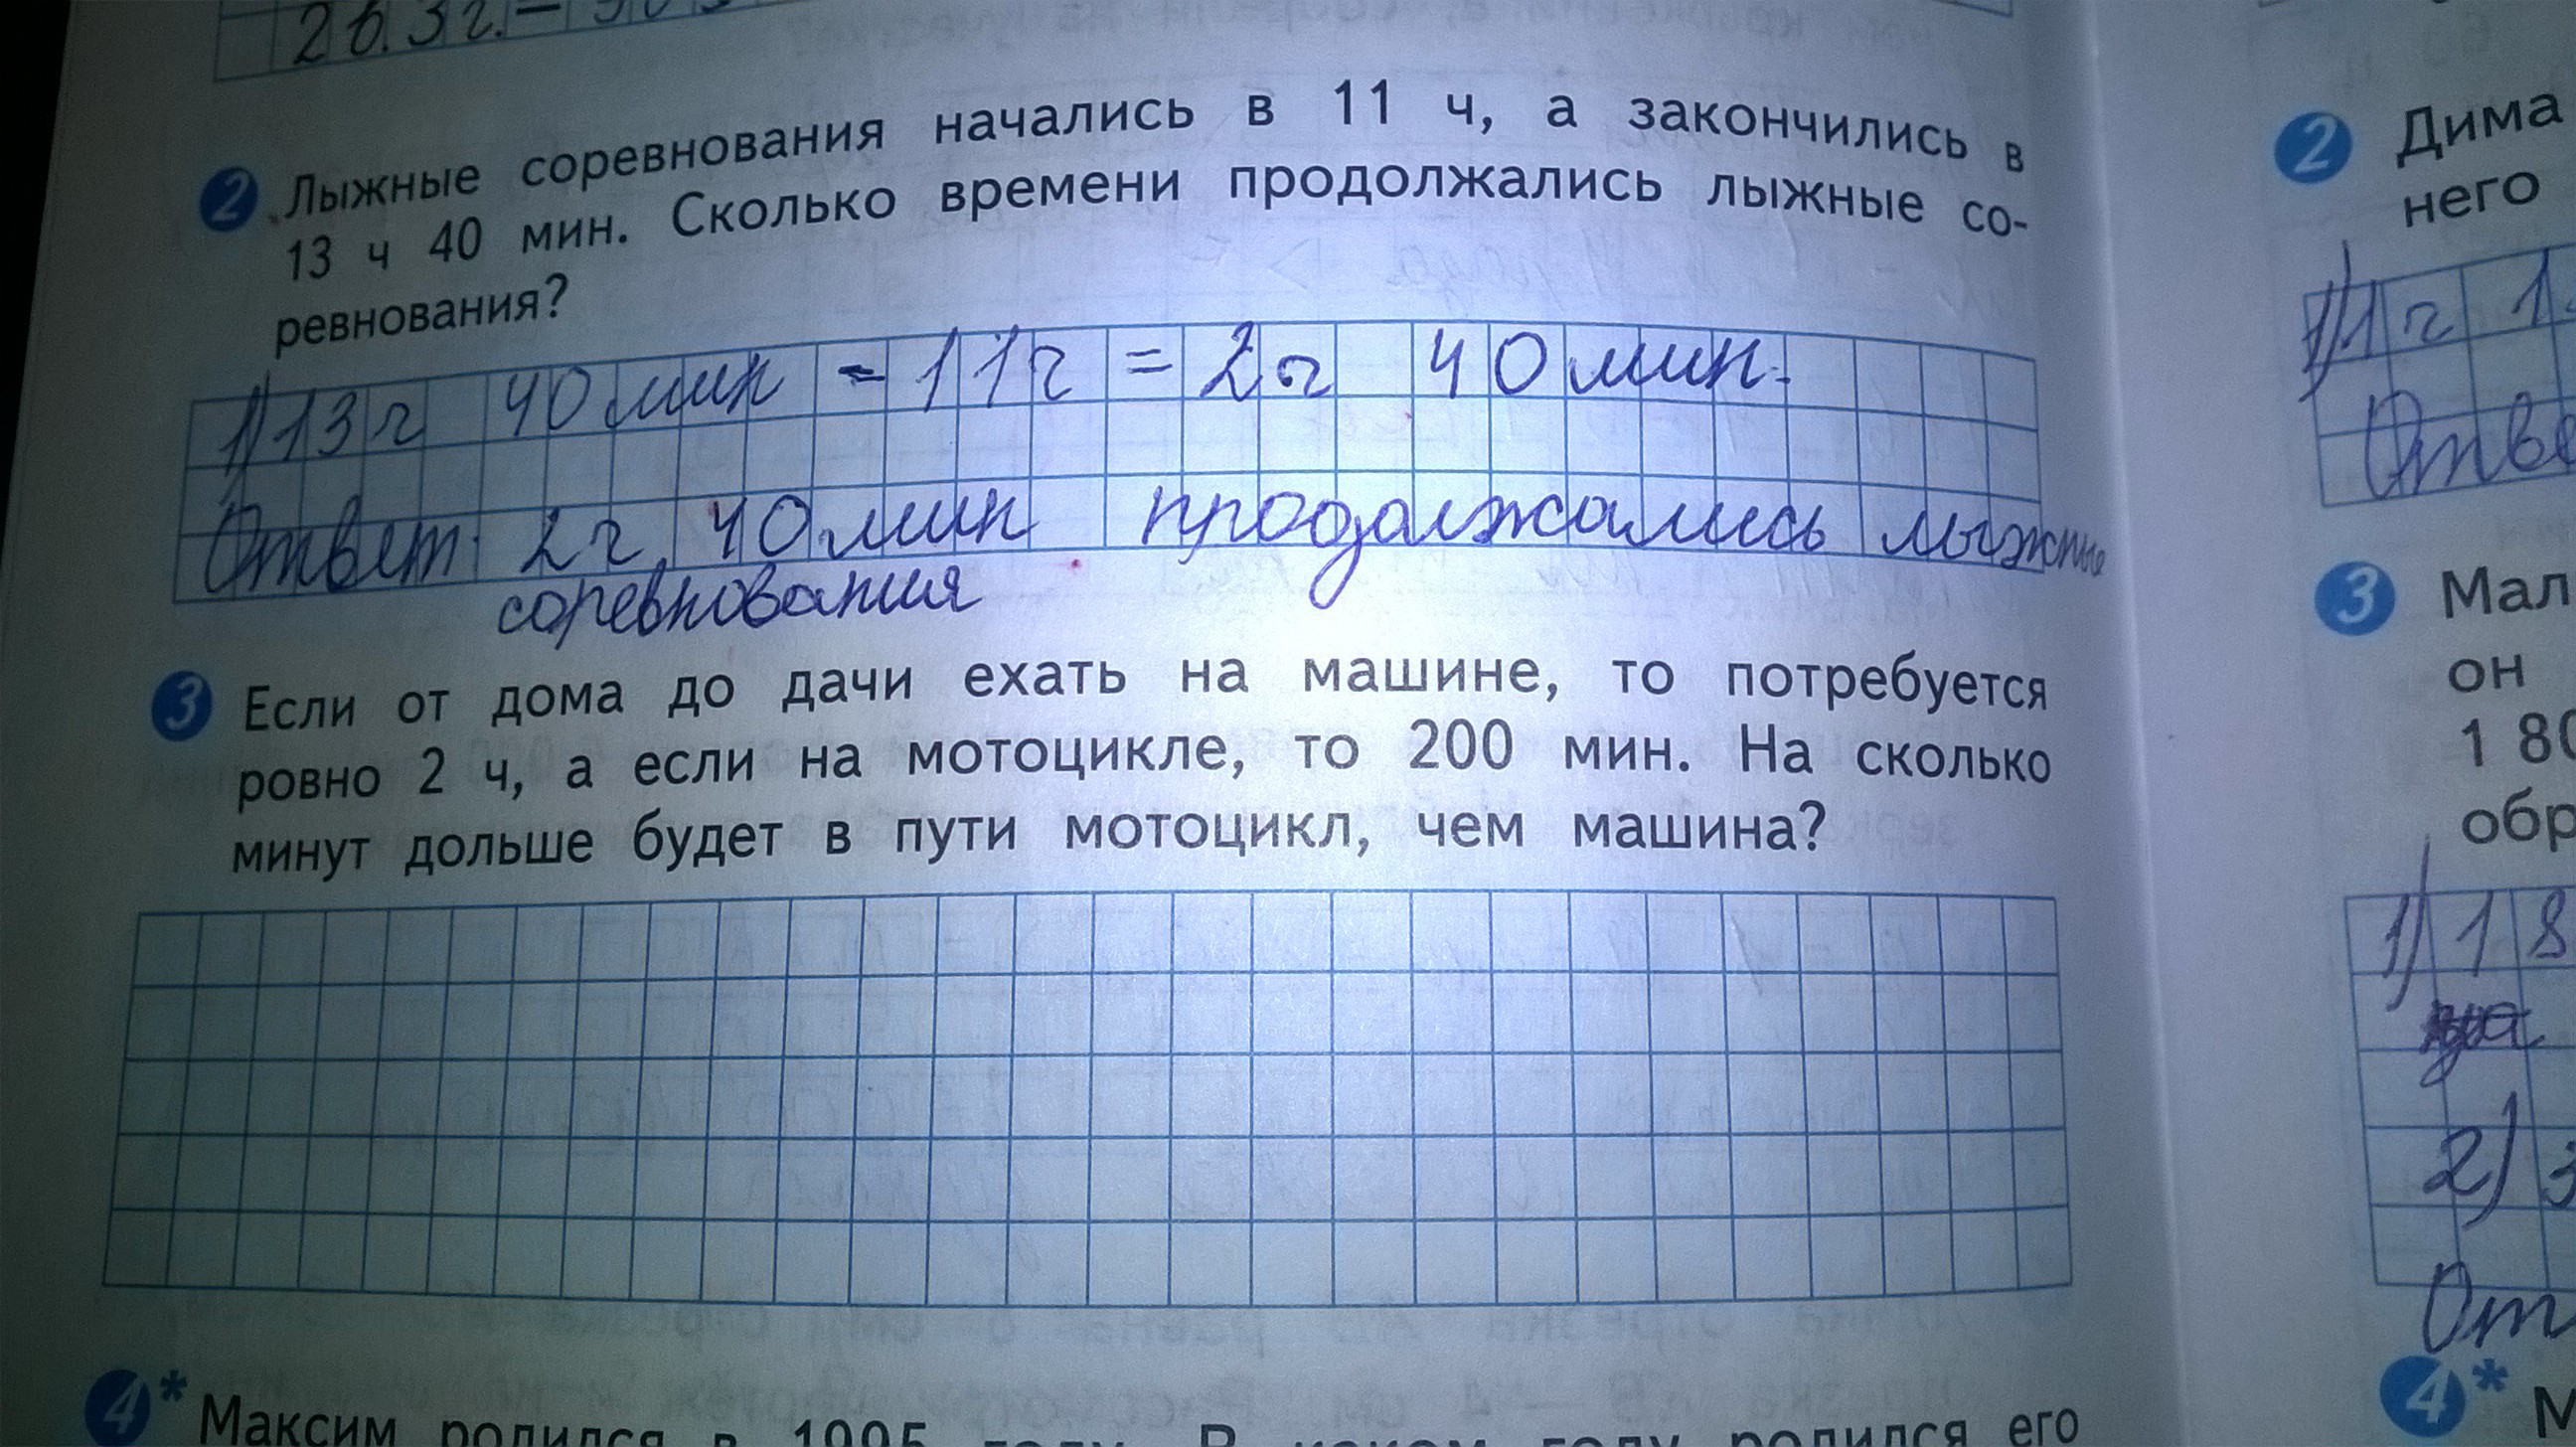 2 Лыжные соревнования начались в 11 ч, а закончились в
13 ч 40 мин. Сколько времени продолжались лыжные со-
ревнования?
1) 13 ч 40 мин - 11 ч = 2 ч 40 мин.
Ответ: 2 ч 40 мин продолжались лыжные
соревнования
3 Если от дома до дачи ехать на машине, то потребуется
ровно 2 ч, а если на мотоцикле, то 200 мин. На сколько
минут дольше будет в пути мотоцикл, чем машина?
4* Максим родился в 1995 году. В каком году родился его
2 Дима
него
1) 1 ч 1
Отве
3 Мал
он
1 80
обр
1) 1 8
2) 3
От
4* М